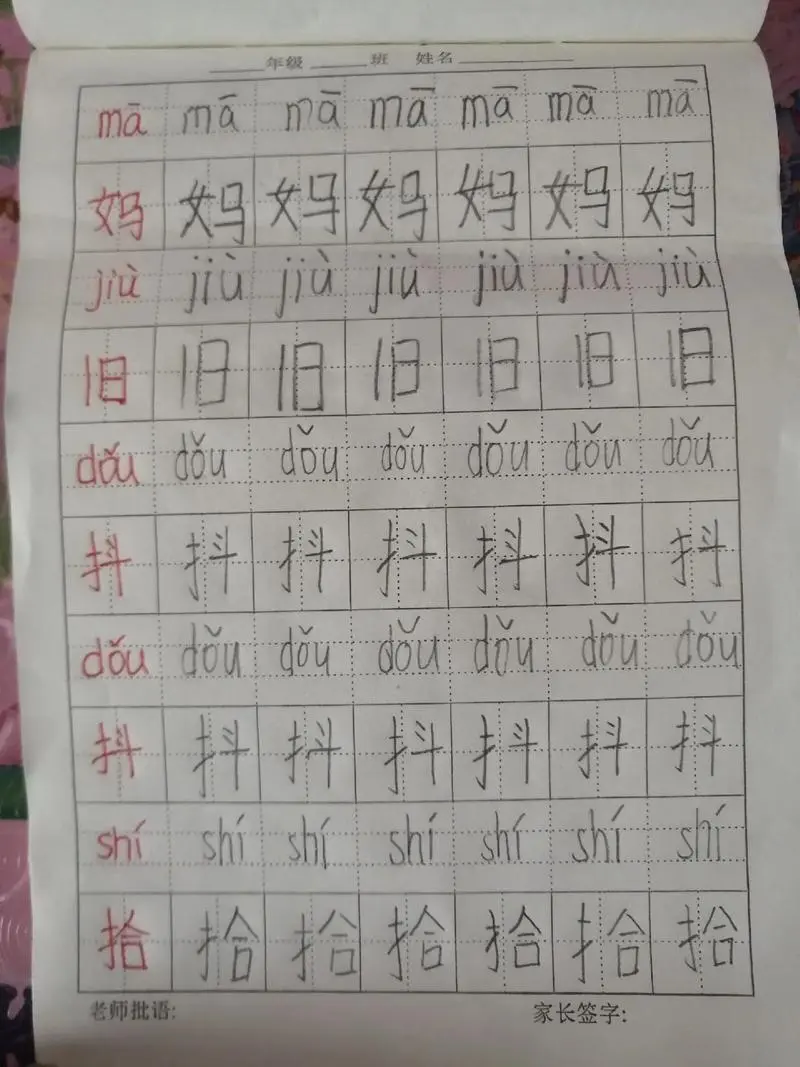 ______年级______班 姓名____________
mā mā mā mā mā mā mā
妈 妈 妈 妈 妈 妈 妈
jiù jiù jiù jiù jiù jiù jiù
旧 旧 旧 旧 旧 旧 旧
dǒu dǒu dǒu dǒu dǒu dǒu dǒu
抖 抖 抖 抖 抖 抖 抖
dǒu dǒu dǒu dǒu dǒu dǒu dǒu
抖 抖 抖 抖 抖 抖 抖
shí shí shí shí shí shí shí
拾 拾 拾 拾 拾 拾 拾
老师批语: 家长签字: